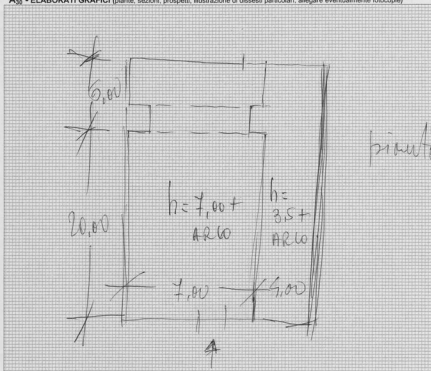 A30 - ELABORATI GRAFICI (piante, sezioni, prospetti, illustrazione di dissesti particolari, allegare eventualmente fotocopie)
6,00
20,00
h=7,00+
ARCO
h=
3,5+
ARCO
7,00